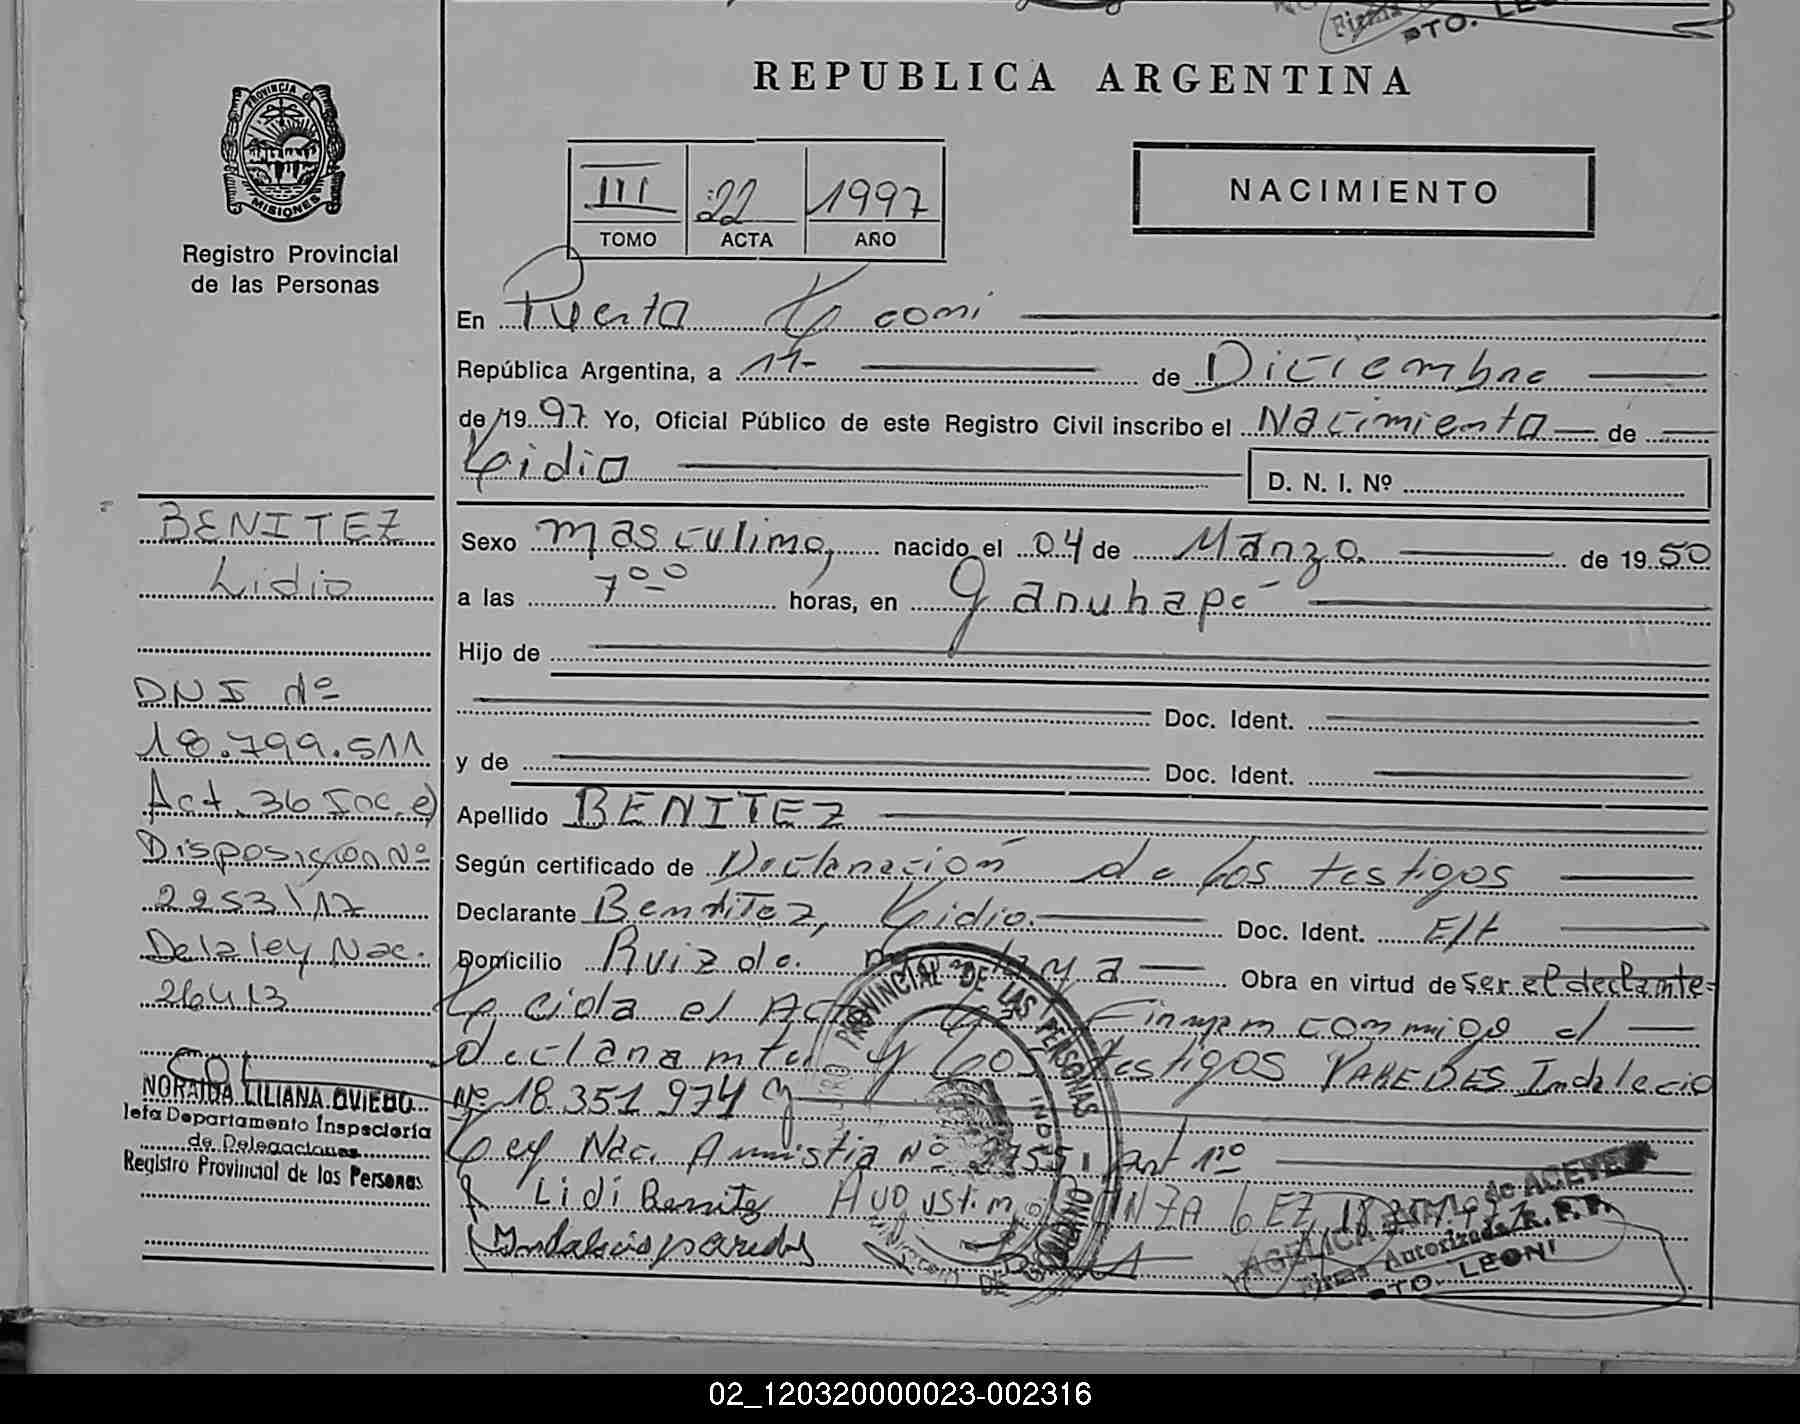 PROVINCIA DE
MISIONES
Registro Provincial
de las Personas
BENITEZ
Lidio
DNI Nº
18.799.511
Act. 36 Inc. e)
Disposición Nº
2253/17
De la ley Nac.
26413
NORAIDA LILIANA OVIEDO
Jefa Departamento Inspectoría
de Delegaciones
Registro Provincial de las Personas
PTO. LEO
REPUBLICA ARGENTINA
III 22 1997
TOMO ACTA AÑO
NACIMIENTO
En Puerto Leoni
República Argentina, a 11- de Diciembre
de 1997. Yo, Oficial Público de este Registro Civil inscribo el Nacimiento de
Lidio D. N. I. Nº
Sexo masculino, nacido el 04 de Marzo de 1950
a las 7⁰⁰ horas, en Garuhapé
Hijo de
Doc. Ident.
y de Doc. Ident.
Apellido BENITEZ
Según certificado de Declaración de los testigos
Declarante Benitez, Lidio. Doc. Ident.
Domicilio Ruiz de Montoya Obra en virtud de ser el declarante
Leida el Acta La Firman conmigo el
declarante y los testigos PAREDES Indalecio
Nº 18.351.974 y
Ley Nac. Amnistia Nº art 1º
Lidi Benitez Augustin
Indalecio paredes
PROVINCIAL DE LAS PERSONAS
de ACEVE
Firma Autorizada R. P. P.
PTO. LEONI
02_120320000023-002316